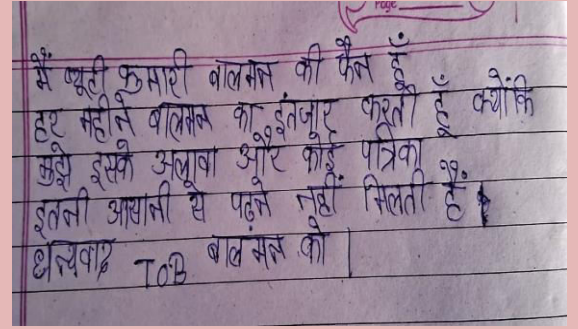 Page
मैं ब्यूटी कुमारी बालमन की फैन हूँ
हर महीने बालमन का इंतजार करती हूँ क्योंकि
मुझे इसके अलावा और कोई पत्रिका
इतनी आसानी से पढ़ने नहीं मिलती हैं।
धन्यवाद TOB बाल मन को |